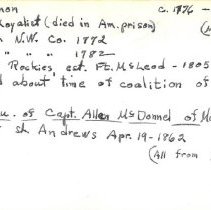 non c. 1776 -
oyalist (died in Am. prison)
N.W. Co. 1772
" " " 1782
Rockies est. Ft. McLeod - 1805
d about time of coalition of
u. of Capt. Allen McDonnel of
St. Andrews Apr. 19 - 1862
(All from